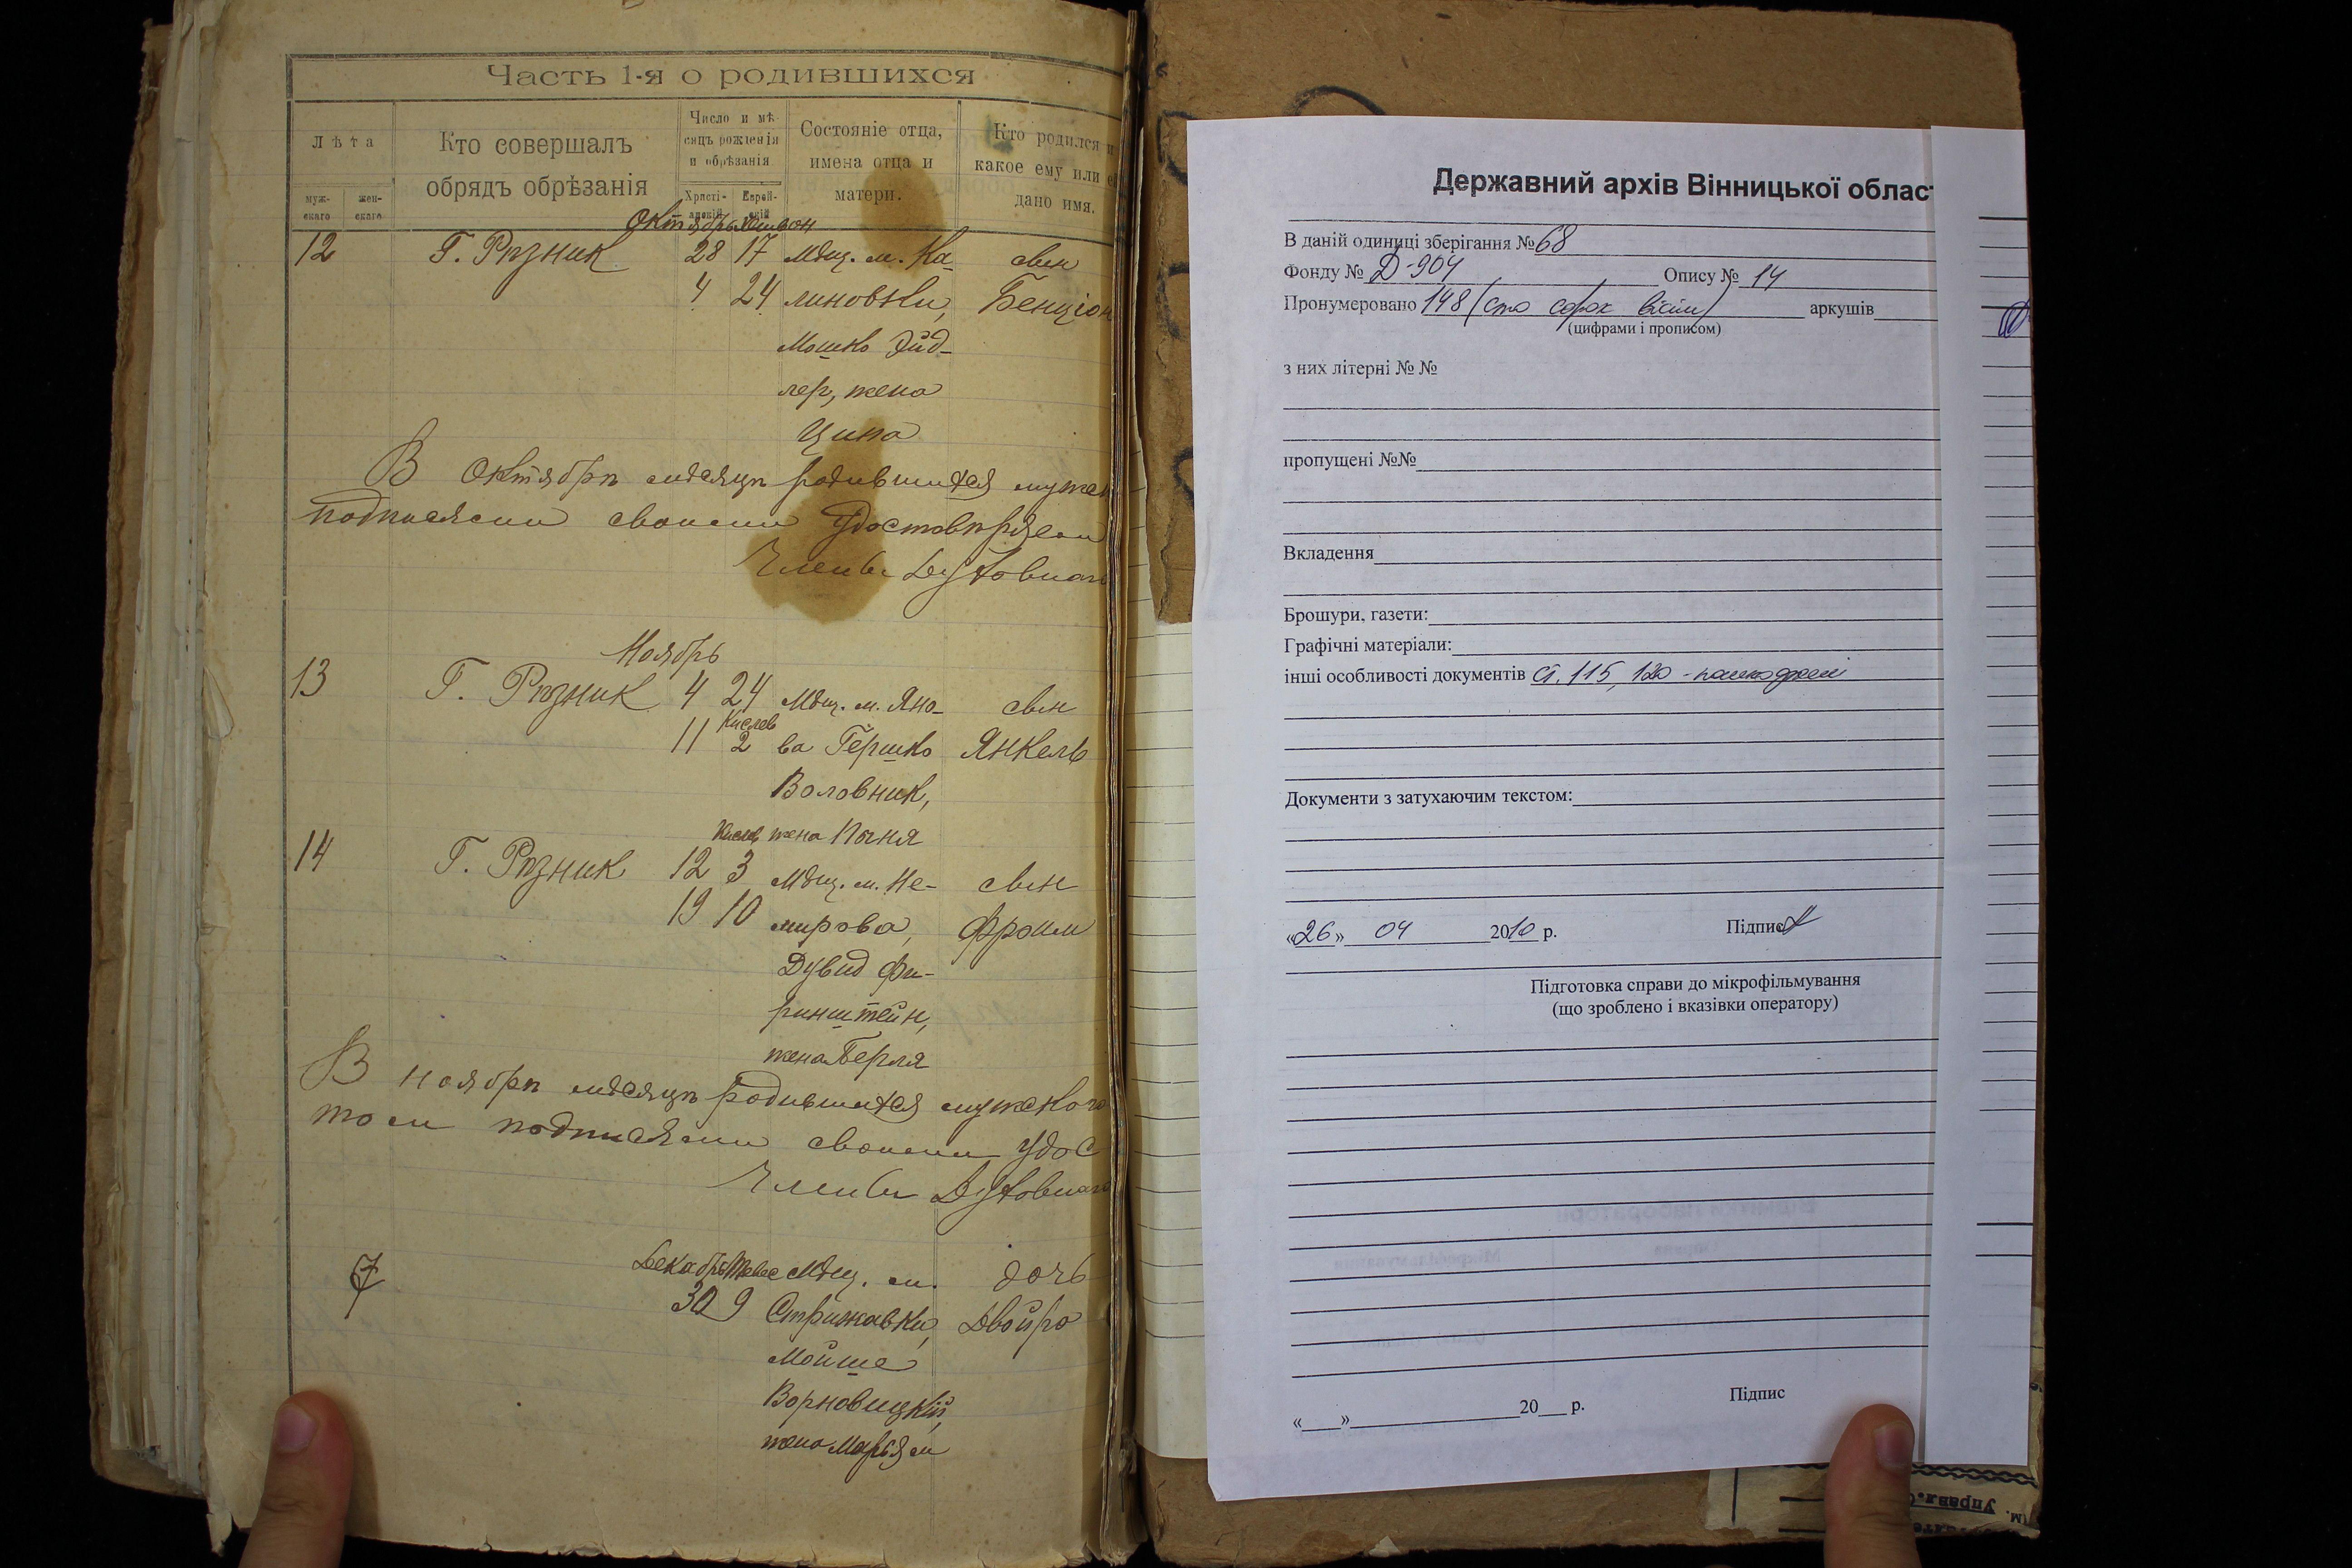 Часть 1-я о родившихся
Лѣта
муж-
скаго
жен-
скаго
Кто совершалъ
обрядъ обрѣзанія
Число и мѣ-
сяцъ рожденія
и обрѣзанія
Христі-
анскій
Еврей-
скій
Состояніе отца,
имена отца и
матери.
Кто родился и
какое ему или ей
дано имя.
Октябрь
12 Г. Рѣзник 28 17 Мѣщ. м. Ка- сын
4 24 линовки, Бенціон
Мошко Эйд-
лер, жена
Цина
В Октябрѣ мѣсяцѣ родившихся мужск
подписями своими удостовѣряем
Члены Духовнаго
Ноябрь
13 Г. Рѣзник 4 24 Мѣщ. м. Яно- сын
Кислев
11 2 ва Гершко Янкель
Воловник,
Кислев жена Пыня
14 Г. Рѣзник 12 3 Мѣщ. м. Не- сын
19 10 мирова, Фроим
Дувид Фи-
ринштейн,
жена Берля
В ноябрѣ мѣсяцѣ родившихся мужского
том подписями своими удос
Члены Духовнаго
7 Декабрь Тевес Мѣщ. м. дочь
30 9 Стрижавки, Двойра
Мойше
Ворновицкій,
жена Марьям
Державний архів Вінницької област
В даній одиниці зберігання № 68
Фонду № Д-904 Опису № 14
Пронумеровано 148 (сто сорок вісім) аркушів
(цифрами і прописом)
з них літерні № №
пропущені №№
Вкладення
Брошури, газети:
Графічні матеріали:
інші особливості документів ст. 115, 120 - пошкоджені
Документи з затухаючим текстом:
«26» 04 2010 р. Підпис
Підготовка справи до мікрофільмування
(що зроблено і вказівки оператору)
«___» 20___ р. Підпис